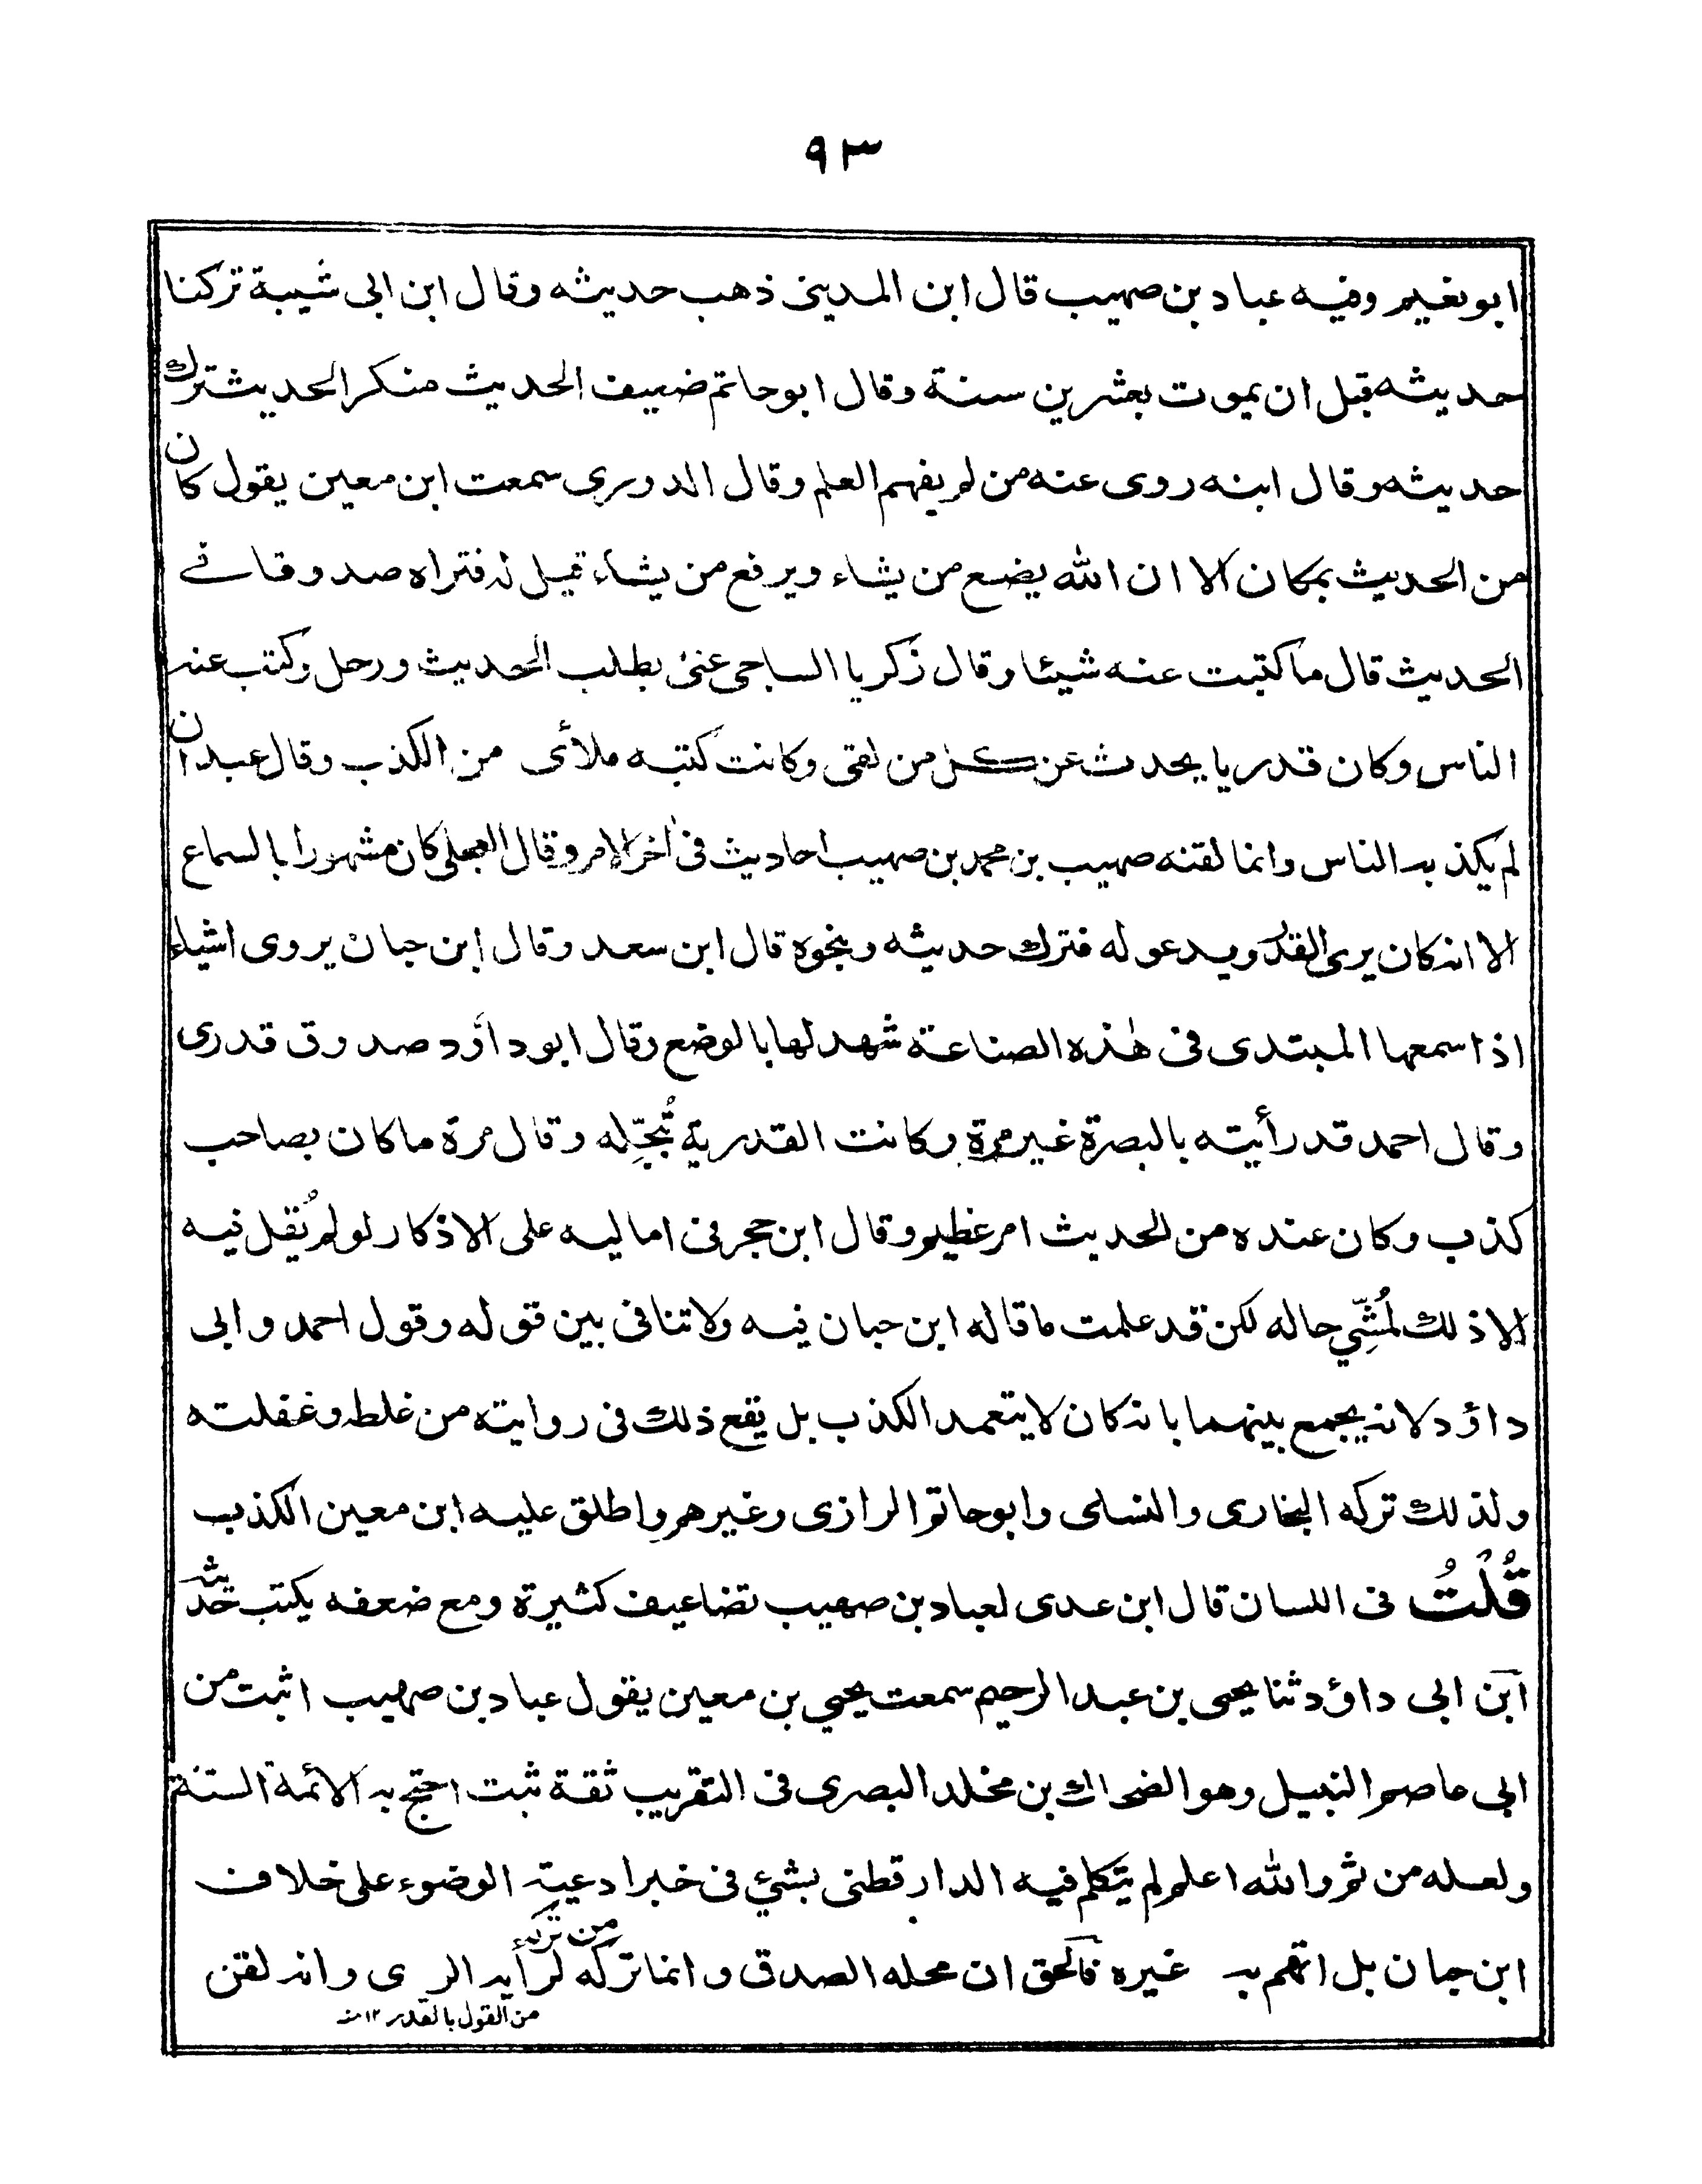 ٩٣
ابو نعيم وفيه عباد بن صهيب قال ابن المديني ذهب حديثه وقال ابن ابى شيبة تركنا
حديثه قبل ان يموت بعشرين سنة وقال ابو حاتم ضعيف الحديث منكر الحديث ترك
حديثه وقال ابنه روى عنه من لم يفهم العلم وقال الدورى سمعت ابن معين يقول كان
من الحديث بمكان الا ان الله يضع من يشاء ويرفع من يشاء قيل له فتراه صدوقا فى
الحديث قال ما كتبت عنه شيئا وقال زكريا الساجى عنى بطلب الحديث ورحل وكتب عنه
الناس وكان قدريا يحدث عن كل من لقى وكانت كتبه ملأى من الكذب وقال عبدان
لم يكذبه الناس وانما لقنه صهيب بن محمد بن صهيب احاديث فى اٰخر الامر وقال العجلى كان مشهورا بالسماع
الا انه كان يرى القدر ويدعو له فترك حديثه وبنحوه قال ابن سعد وقال ابن حبان يروى اشياء
اذا سمعها المبتدى فى هٰذه الصناعة شهد لها بالوضع وقال ابو داؤد صدوق قدرى
وقال احمد قد رأيته بالبصرة غير مرة وكانت القدرية تُبَجِّله وقال مرة ما كان بصاحب
كذب وكان عنده من الحديث امر عظيم وقال ابن حجر فى اماليه على الاذكار لو لم يُقل فيه
الا ذلك لمُشِّي حاله لكن قد علمت ما قاله ابن حبان فيه ولا تنافى بين قوله وقول احمد وابى
داؤد لانه يجمع بينهما بانه كان لا يتعمد الكذب بل يقع ذلك فى روايته من غلطه وغفلته
ولذلك تركه البخارى والنسائى وابو حاتم الرازى وغيرهم واطلق عليه ابن معين الكذب
قُلْتُ فى اللسان قال ابن عدى لعباد بن صهيب تضاعيف كثيرة ومع ضعفه يكتب حديثه
ابن ابى داؤد ثنا يحيى بن عبد الرحيم سمعت يحيي بن معين يقول عباد بن صهيب اثبت من
ابى عاصم النبيل وهو الضحاك بن مخلد البصرى فى التقريب ثقة ثبت احتج به الائمة الستة
ولعله من ثم والله اعلم لم يتكلم فيه الدار قطنى بشئ فى خبر ادعية الوضوء على خلاف
ابن حبان بل اتهم به غيره فالحق ان محله الصدق وانما تركه من تركه لرأيه الردى وانه لقن
من القول بالقدر ١٢ منه